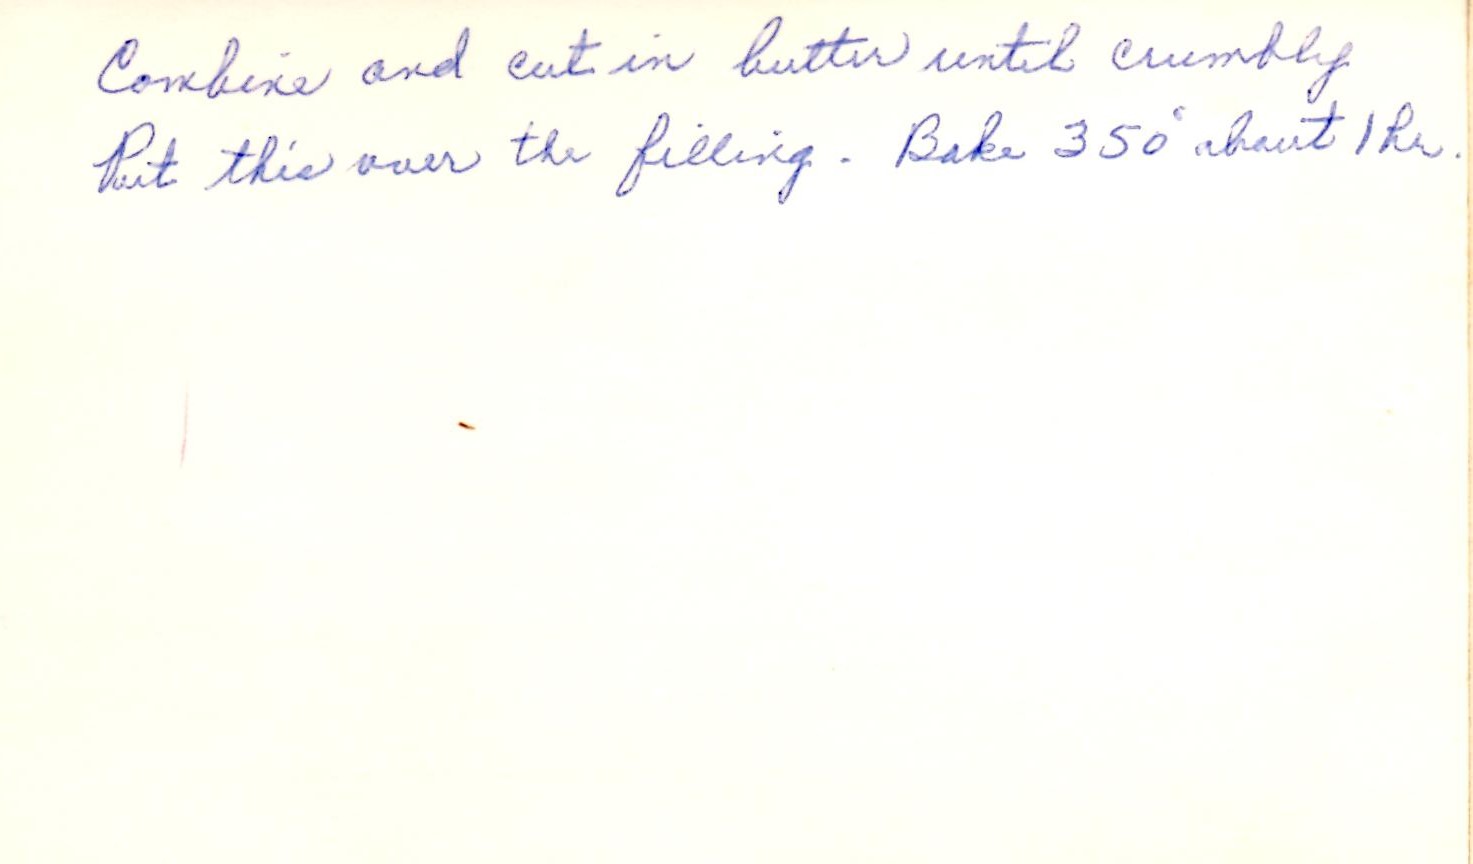 Combine and cut in butter until crumbly
Put this over the filling. Bake 350° about 1 hr.